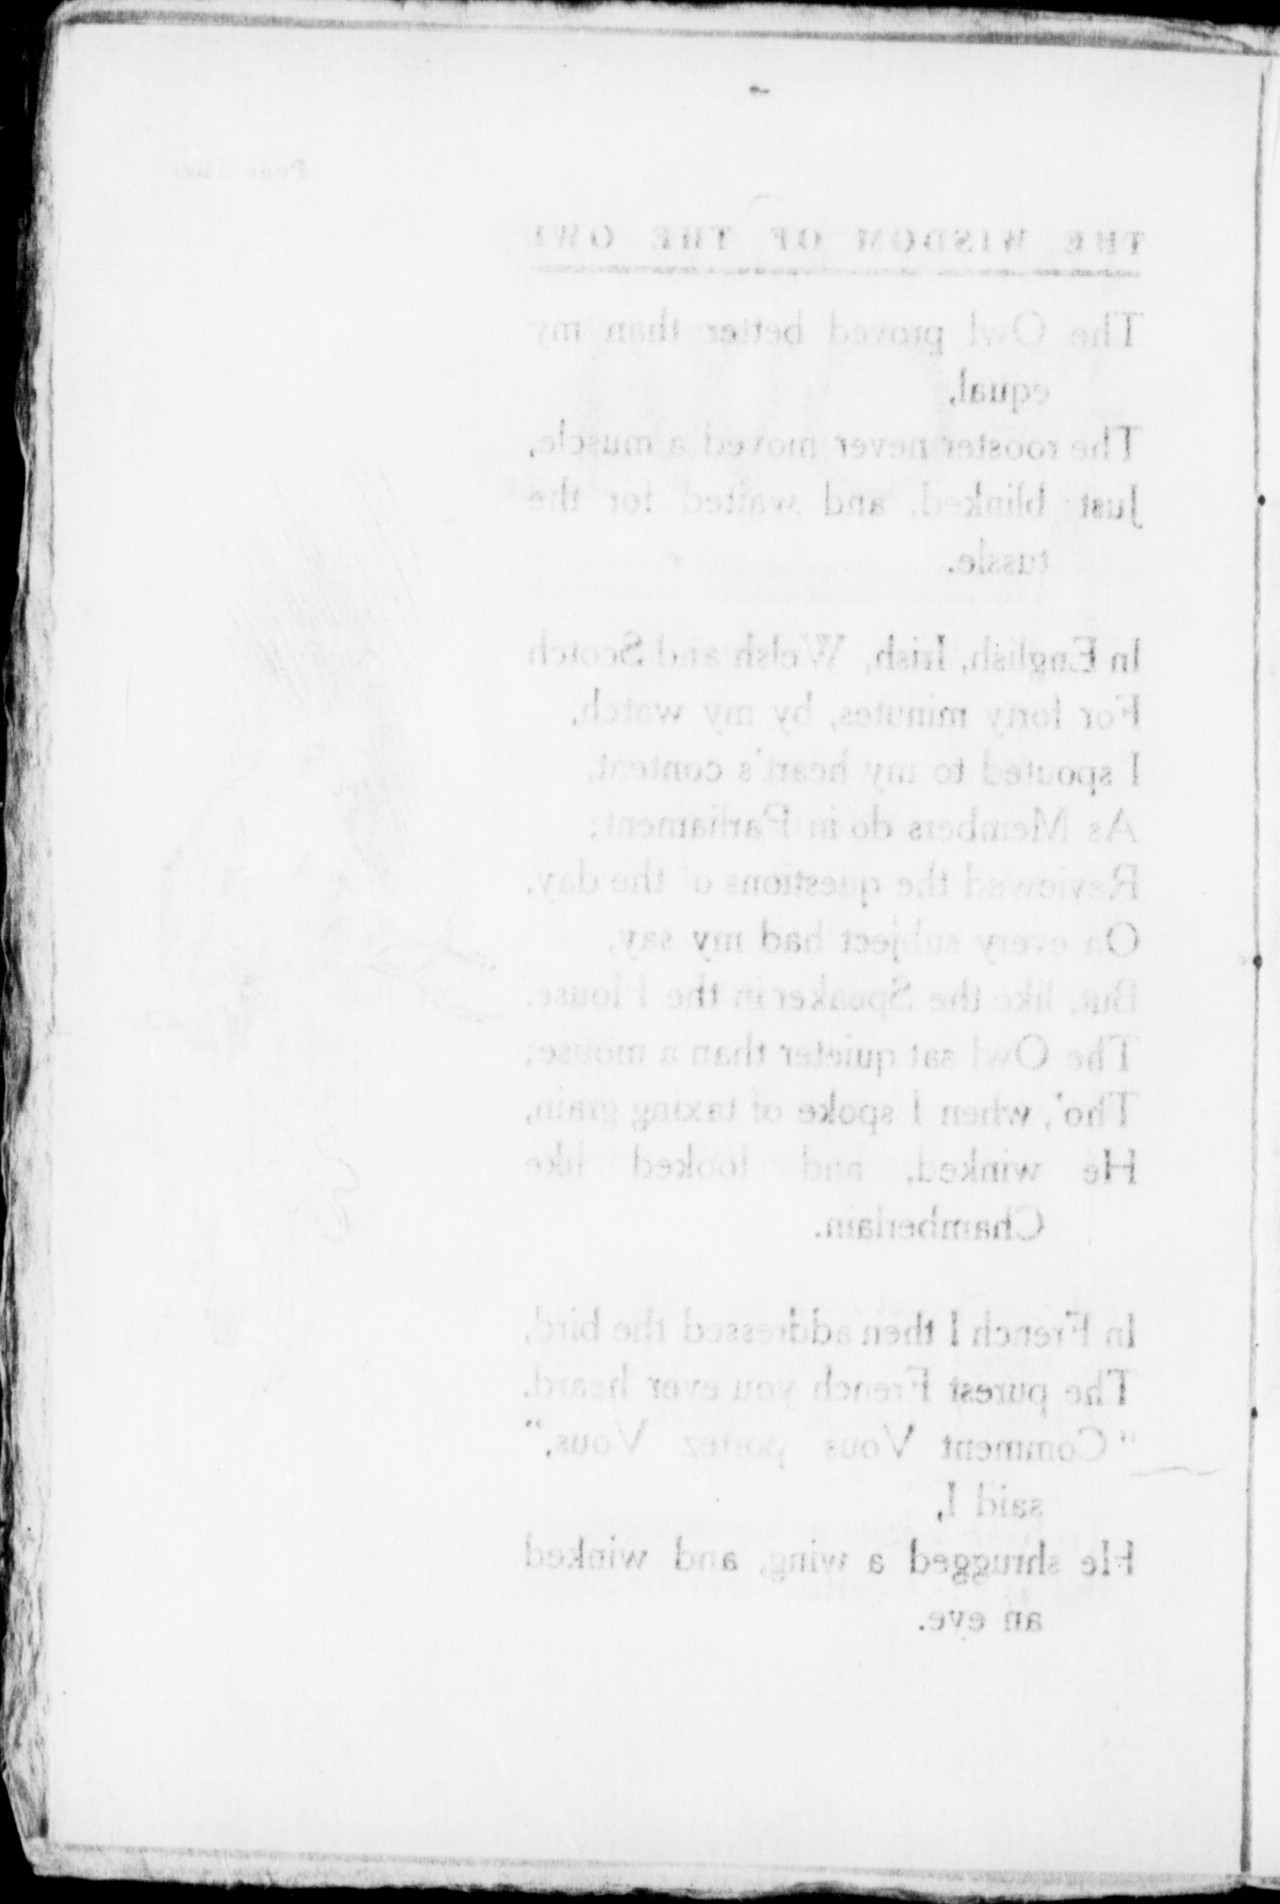 THE WISDOM OF THE OWL
The Owl proved better than my
equal,
The rooster never moved a muscle,
Just blinked, and waited for the
tussle.
In English, Irish, Welsh and Scotch
For forty minutes, by my watch,
I spouted to my heart's content,
As Members do in Parliament;
Reviewed the questions of the day,
On every subject had my say,
But, like the Speaker in the House,
The Owl sat quieter than a mouse;
Tho', when I spoke of taxing grain,
He winked, and looked like
Chamberlain.
In French I then addressed the bird,
The purest French you ever heard.
"Comment Vous portez Vous,"
said I,
He shrugged a wing, and winked
an eye.